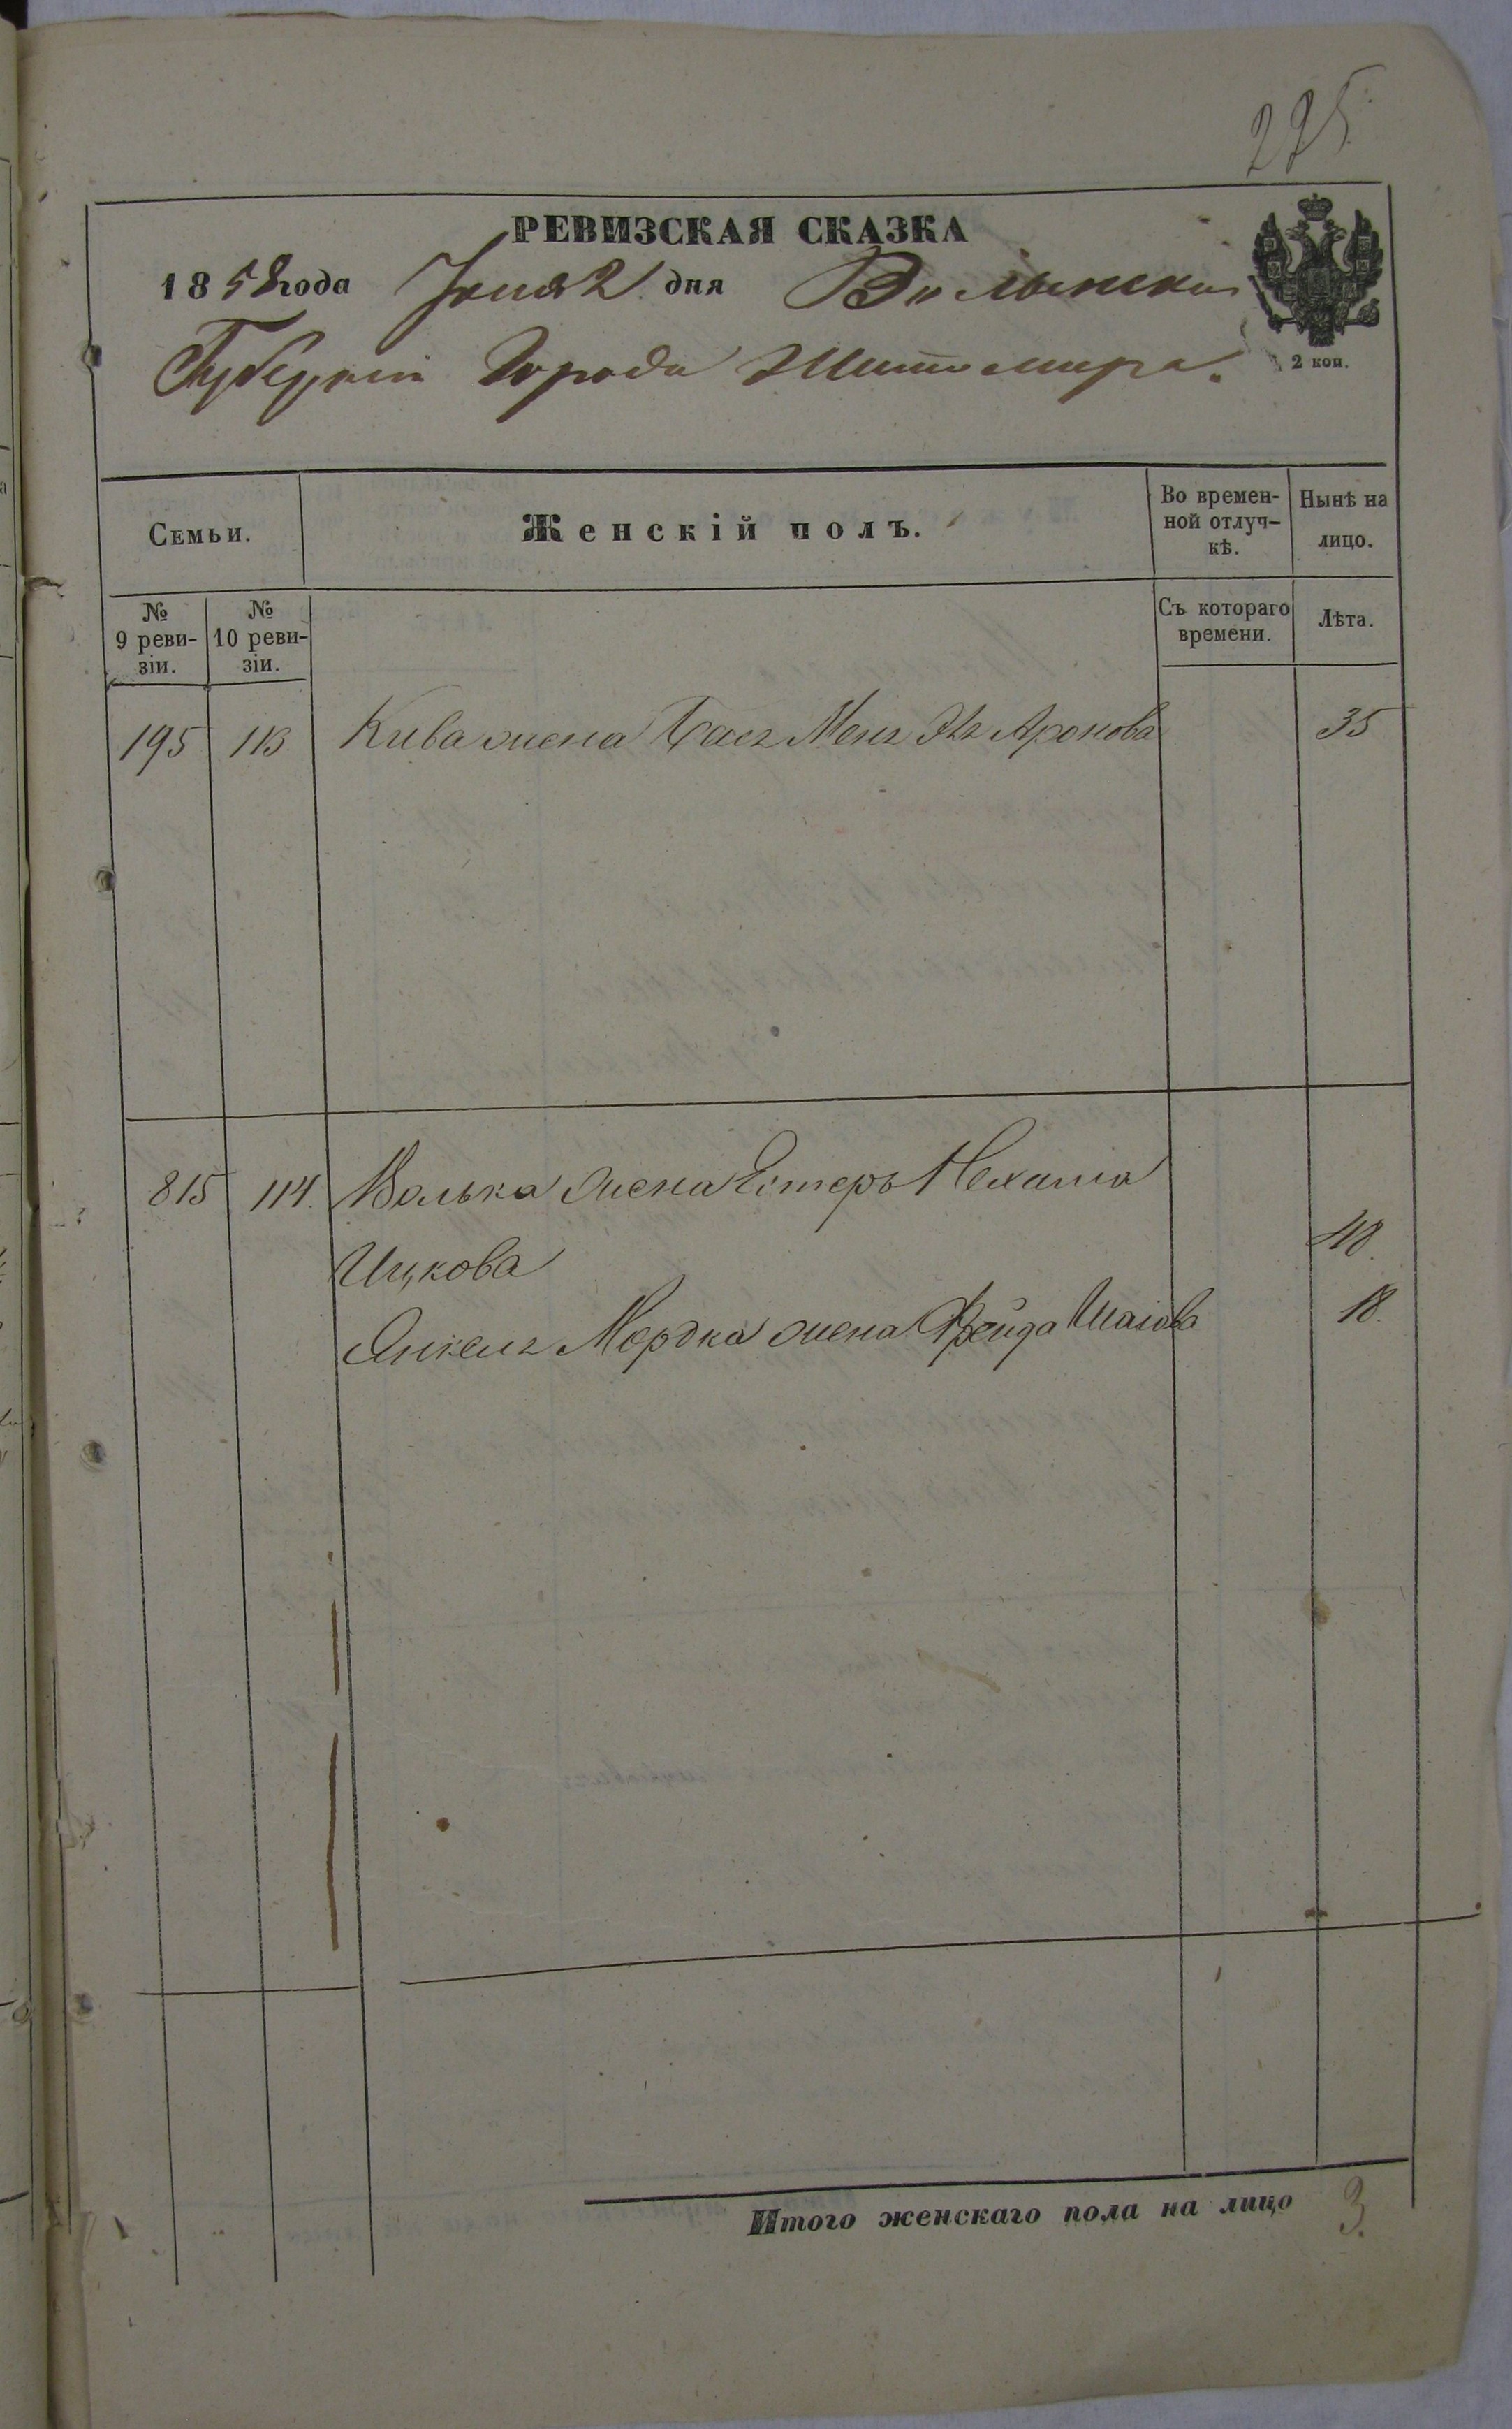 225
РЕВИЗСКАЯ СКАЗКА
1858 года Іюня 2 дня Волынской
Губерніи Города Житомира.
2 коп.
Семьи.
Женскій полъ.
Во времен-
ной отлуч-
кѣ.
Нынѣ на
лицо.
№
9 реви-
зіи.
№
10 реви-
зіи.
Съ котораго
времени.
Лѣта.
195 113 Кива жена Аронова 35
815 114. Волька жена Естеръ Нехама
Ицкова 48.
Янкель Мордка жена Фрейда Шаіова 18.
Итого женскаго пола на лицо 3.